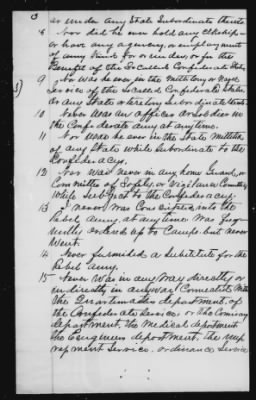 or under any State Subordinate thereto
8 Nor did he ever hold any Clerkship
or have any agency, or employment
of any kind for or under, or for the
benefit of the So Called Confederate States
9 Nor was he ever in the Military or Naval
Service of the So Called Confederate States,
or any State or teritory Subordinate thereto.
10 Never was an officer or Soldier in
the Confederate army at any time.
11 Nor was he ever in the State Militia
of any State while Subordinate to the
Confederacy.
12 Nor was never in any home Guard, or
Committee of Safety, or Vigilance Committee
while Subject to the Confederacy.
13 I never was Conscripted into the
Rebel army, at any time. Was freq-
uently ordered up to Camp but never
Went.
14 Never furnished a Substitute for the
Rebel army.
15 Never was in any way directly or
indirectly in any way Connected with
the Quartermaster department, of
the Confederate Service. or The Commissary
department, the Medical department
the Engineers department. the
Service. ordinance Service